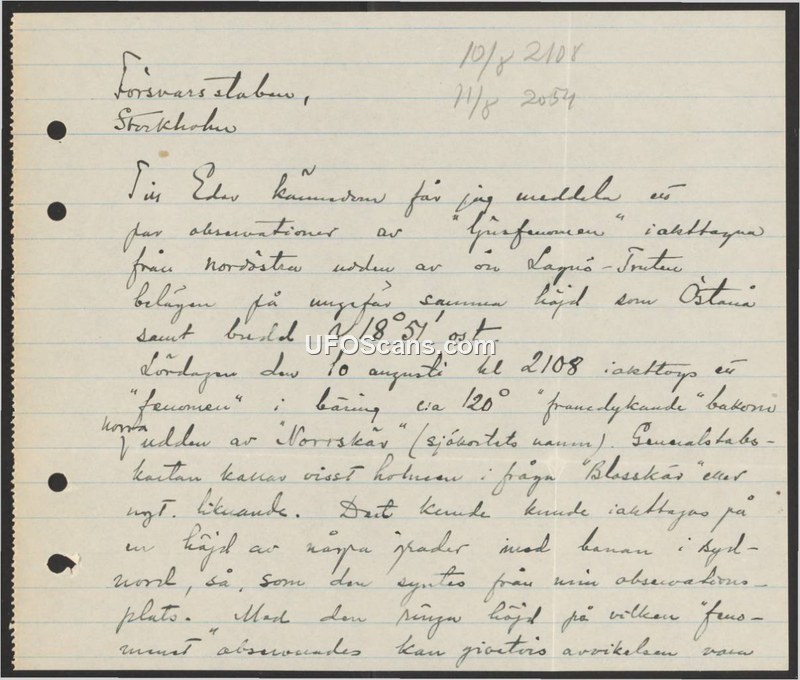 10/8 2108
11/8 2054
Försvarsstaben,
Stockholm
Till Eder kännedom får jag meddela ett
par observationer av "ljusfenomen" iakttagna
från nordöstra udden av ön Lagnö-Truten
belägen på ungefär samma höjd som Östanå
samt bredd 18° 51' ost.
UFOScans.com
Lördagen den 10 augusti kl 2108 iakttogs ett
"fenomen" i bäring c:a 120° "framdykande" bakom
norra
udden av "Norrskär" (sjökortets namn). Generalstabs-
kartan kallar visst holmen i fråga "Blosskär" eller
ngt. liknande. Det kunde kunde iakttagas på
en höjd av några grader med banan i syd-
nord, så, som den syntes från min observations-
plats. Med den ringa höjd på vilken "feno-
menet" observerades kan givetvis avvikelsen vara